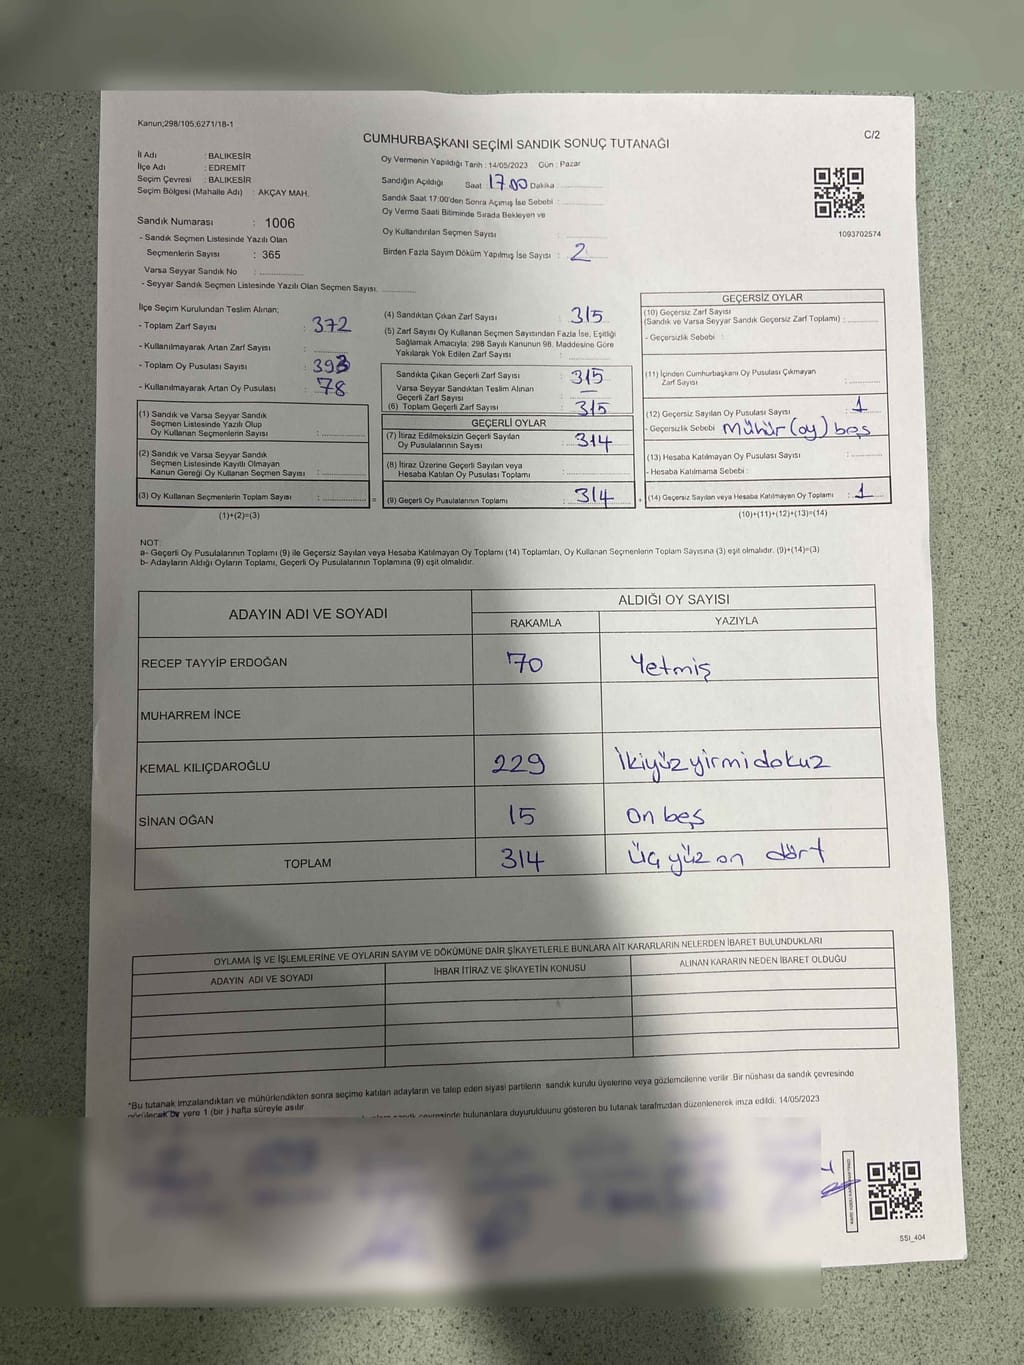 Kanun;298/105;6271/18-1
C/2
CUMHURBAŞKANI SEÇİMİ SANDIK SONUÇ TUTANAĞI
İl Adı : BALIKESİR
İlçe Adı : EDREMİT
Seçim Çevresi : BALIKESİR
Seçim Bölgesi (Mahalle Adı) : AKÇAY MAH.
Sandık Numarası : 1006
- Sandık Seçmen Listesinde Yazılı Olan
Seçmenlerin Sayısı : 365
Varsa Seyyar Sandık No :
- Seyyar Sandık Seçmen Listesinde Yazılı Olan Seçmen Sayısı.
Oy Vermenin Yapıldığı Tarih : 14/05/2023 Gün : Pazar
Sandığın Açıldığı Saat : 17 00 Dakika
Sandık Saat 17:00'den Sonra Açımış İse Sebebi :
Oy Verme Saati Bitiminde Sırada Bekleyen ve
Oy Kullandırılan Seçmen Sayısı :
Birden Fazla Sayım Döküm Yapılmış İse Sayısı : 2
1093702574
İlçe Seçim Kurulundan Teslim Alınan;
- Toplam Zarf Sayısı : 372
- Kullanılmayarak Artan Zarf Sayısı :
- Toplam Oy Pusulası Sayısı : 393
- Kullanılmayarak Artan Oy Pusulası : 78
(1) Sandık ve Varsa Seyyar Sandık
Seçmen Listesinde Yazılı Olup
Oy Kullanan Seçmenlerin Sayısı :
(2) Sandık ve Varsa Seyyar Sandık
Seçmen Listesinde Kayıtlı Olmayan
Kanun Gereği Oy Kullanan Seçmen Sayısı :
(3) Oy Kullanan Seçmenlerin Toplam Sayısı : =
(1)+(2)=(3)
(4) Sandıktan Çıkan Zarf Sayısı : 315
(5) Zarf Sayısı Oy Kullanan Seçmen Sayısından Fazla İse, Eşitliği
Sağlamak Amacıyla; 298 Sayılı Kanunun 98. Maddesine Göre
Yakılarak Yok Edilen Zarf Sayısı :
Sandıkta Çıkan Geçerli Zarf Sayısı : 315
Varsa Seyyar Sandıktan Teslim Alınan
Geçerli Zarf Sayısı : —
(6) Toplam Geçerli Zarf Sayısı : 315
GEÇERLİ OYLAR
(7) İtiraz Edilmeksizin Geçerli Sayılan
Oy Pusulalarının Sayısı : 314
(8) İtiraz Üzerine Geçerli Sayılan veya
Hesaba Katılan Oy Pusulası Toplamı :
(9) Geçerli Oy Pusulalarının Toplamı : 314 +
GEÇERSİZ OYLAR
(10) Geçersiz Zarf Sayısı
(Sandık ve Varsa Seyyar Sandık Geçersiz Zarf Toplamı) :
- Geçersizlik Sebebi :
(11) İçinden Cumhurbaşkanı Oy Pusulası Çıkmayan
Zarf Sayısı :
(12) Geçersiz Sayılan Oy Pusulası Sayısı : 1
- Geçersizlik Sebebi : Mühür (oy) beş
(13) Hesaba Katılmayan Oy Pusulası Sayısı :
- Hesaba Katılmama Sebebi :
(14) Geçersiz Sayılan veya Hesaba Katılmayan Oy Toplamı : 1
(10)+(11)+(12)+(13)=(14)
NOT:
a- Geçerli Oy Pusulalarının Toplamı (9) ile Geçersiz Sayılan veya Hesaba Katılmayan Oy Toplamı (14) Toplamları, Oy Kullanan Seçmenlerin Toplam Sayısına (3) eşit olmalıdır. (9)+(14)=(3)
b- Adayların Aldığı Oyların Toplamı, Geçerli Oy Pusulalarının Toplamına (9) eşit olmalıdır.
ADAYIN ADI VE SOYADI
ALDIĞI OY SAYISI
RAKAMLA YAZIYLA
RECEP TAYYİP ERDOĞAN 70 Yetmiş
MUHARREM İNCE
KEMAL KILIÇDAROĞLU 229 İkiyüz yirmi dokuz
SİNAN OĞAN 15 On beş
TOPLAM 314 Üç yüz on dört
OYLAMA İŞ VE İŞLEMLERİNE VE OYLARIN SAYIM VE DÖKÜMÜNE DAİR ŞİKAYETLERLE BUNLARA AİT KARARLARIN NELERDEN İBARET BULUNDUKLARI
ADAYIN ADI VE SOYADI İHBAR İTİRAZ VE ŞİKAYETİN KONUSU ALINAN KARARIN NEDEN İBARET OLDUĞU
*Bu tutanak imzalandıktan ve mühürlendikten sonra seçime katılan adayların ve talep eden siyasi partilerin sandık kurulu üyelerine veya gözlemcilerine verilir .Bir nüshası da sandık çevresinde
görülecek bir yere 1 (bir ) hafta süreyle asılır.
sandık çevresinde bulunanlara duyurulduunu gösteren bu tutanak tarafmzdan düzenlenerek imza edildi. 14/05/2023
SSI_404